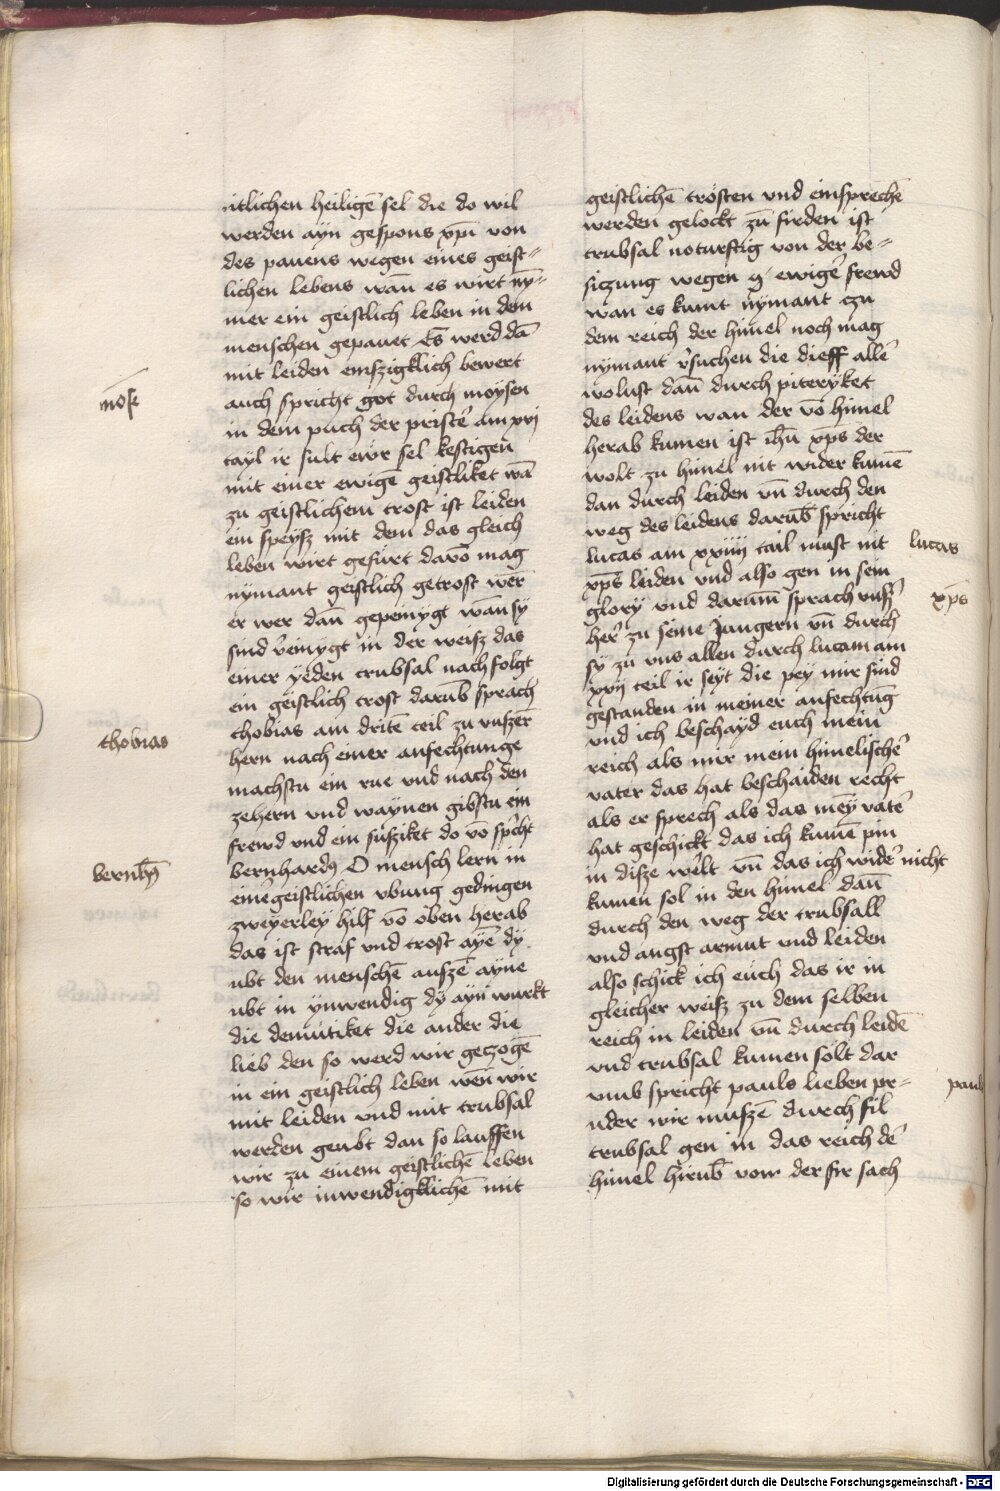 itlichen heiligē sel die do wil
werden ayn gespons xpī von
des pauens wegen eines geist=
lichen lebens wan̄ es wirt ny̅=
mer ein geistlich leben in dem
menschen gepauet Es̄ werd dā
mit leiden emszigklich bewert
auch spricht got durch moysen
in dem puch der pristeꝰ am xvj
tayl ir sult ewr sel kestigen
mit einer ewigē geistliket wā
zu geistlichem trost ist leiden
ein speysz mit dem das gleich
leben wirt gefürt davō mag
nymant geistlich getrost wer
er wer dan̄ gepeinygt wan̄ sy
sind v̓einygt in der weisz das
einer yeden trubsal nach folgt
ein geistlich trost darūb sprach
thobias am dritē teil zu vnszer̄
hern nach einer anfechtunge
machstu ein rue vnd nach den
zehern vnd waynen gibstu ein
frewd vnd ein süsziket do vō sp̓cht
bernhardꝯ O mensch lern in
eineꝰ geistlichen vbung gedingen
zweyerley hilf vō oben herab
das ist straf vnd trost ayē dy
ubt den menschē auszē ayne
ubt in ynwendig dy ayn wurkt
die demütiket die ander die
lieb den so werd wir geczogē
in ein geistlich leben wen̄ wir
mit leiden vnd mit trubsal
werden geubt dan so lauffen
wir zu einem geistlichē leben
so wir inwendigklichē mit
geistlichē trösten vnd einsprechē
werden gelockt zū firden ist
trubsal noturftig von der be=
siczung wegen g ewigē frewd
wan es kumt nymant zu
dem reich der himel noch mag
nymant v̓suchen die dieff alleꝰ
wolust dan̄ durch piteryket
des leidens wan der vō himel
herab kumen ist ih̄u xp̄s der
wolt zu himel nit wider kumē
dan durch leiden vn̄ durch den
weg des leidens darūb spricht
lucas am xxiiij tail must nit
xp̄s leiden vnd also gen in sein
glory vnd darumb sprach vnsꝰ
herꝰ zu seinē Jungern vn̄ durch
sy zu vns allen durch lucam am
xxij teil ir seyt die pey mir sind
gestanden in meiner anfechtūg
vnd ich beschayd euch mein
reich als mir mein himelischeꝰ
vater das hat beschaiden recht
als er sprech als das mēy vateꝰ
hat geschickt das ich kumē pin
in disze welt vn̄ das ich wideꝰ nicht
kumen sol in den himel dan̄
durch den weg der trubsall
vnd angst armut vnd leiden
also schick ich eüch das ir in
gleicher weisz zu dem selben
reich in leiden vn̄ durch leidē
vnd trubsal kumen sölt dar
vmb spricht pauls lieben pr=
uder wir müszē durch fil
trubsal gen in das reich deꝰ
himel hirūb vom der fir sach
thobias
lucas
xp̄s
paul
Digitalisierung gefördert durch die Deutsche Forschungsgemeinschaft - DFG